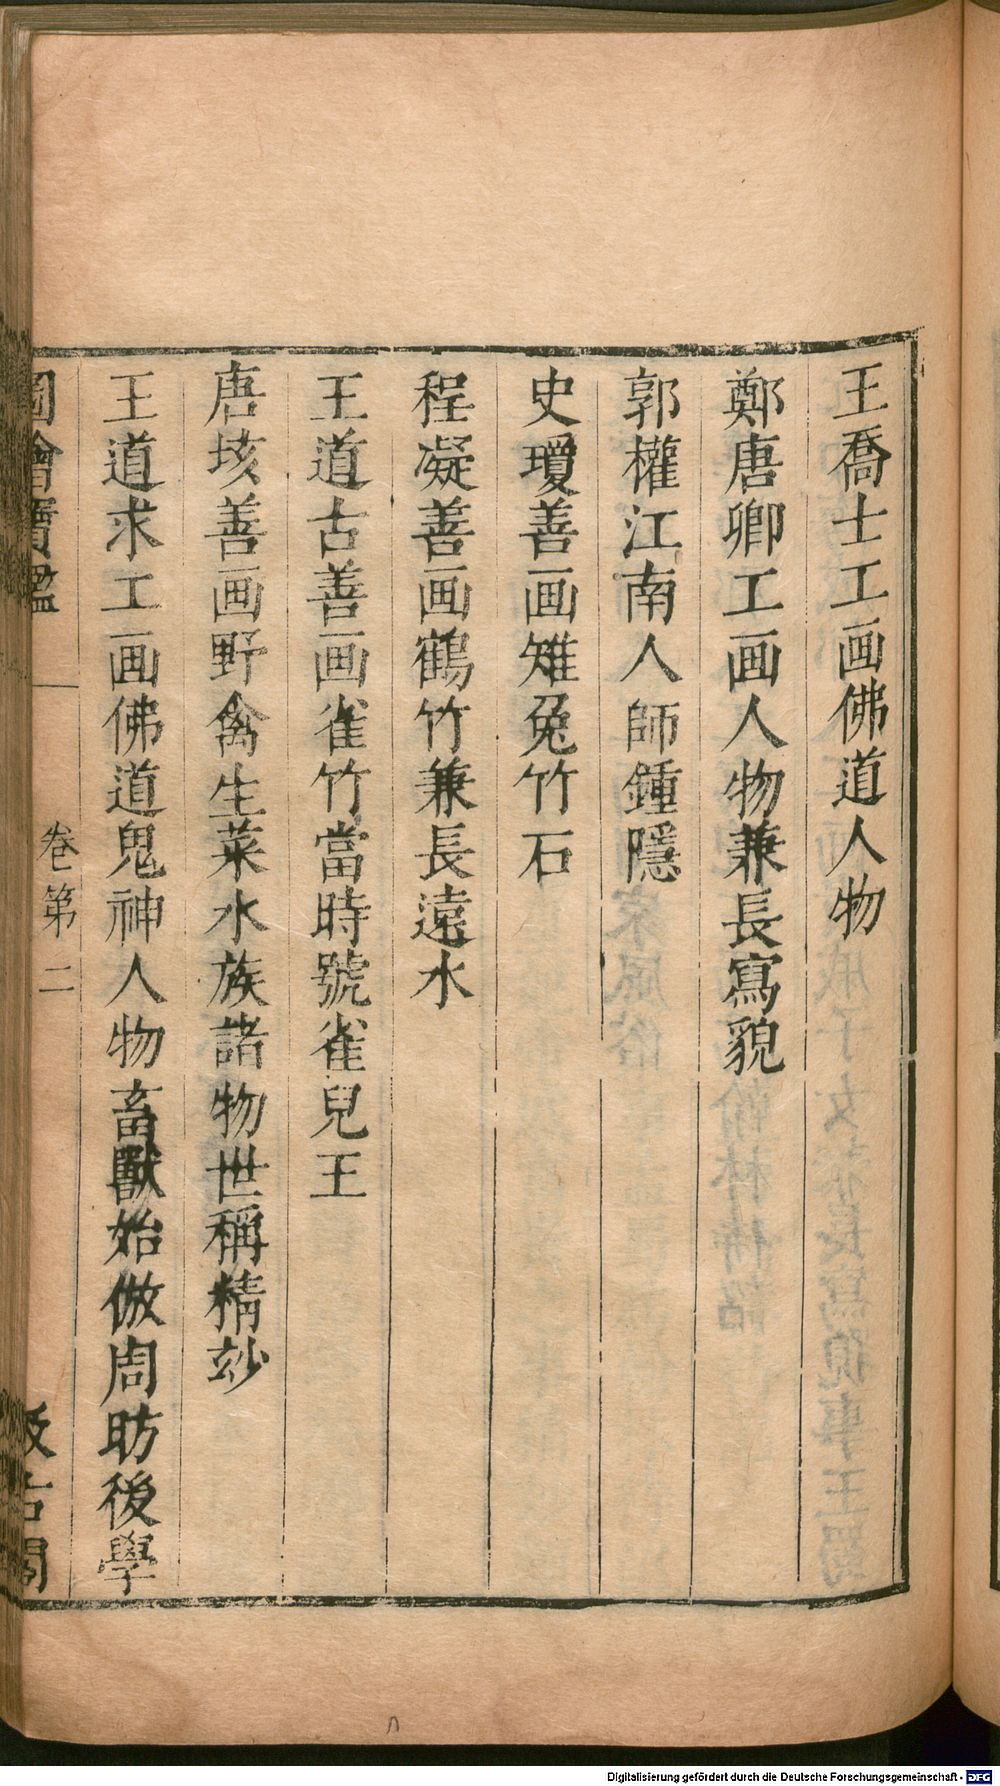 王喬士工画佛道人物
鄭唐卿工画人物兼長寫貌
郭權江南人師鍾隱
史瓊善画雉兔竹石
程凝善画鶴竹兼長遠水
王道古善画雀竹當時號雀兒王
唐垓善画野禽生菜水族諸物世稱精玅
王道求工画佛道鬼神人物畜獸始倣周昉後學
圖繪寶鑑 卷第二 汲古閣
Digitalisierung gefördert durch die Deutsche Forschungsgemeinschaft - DFG